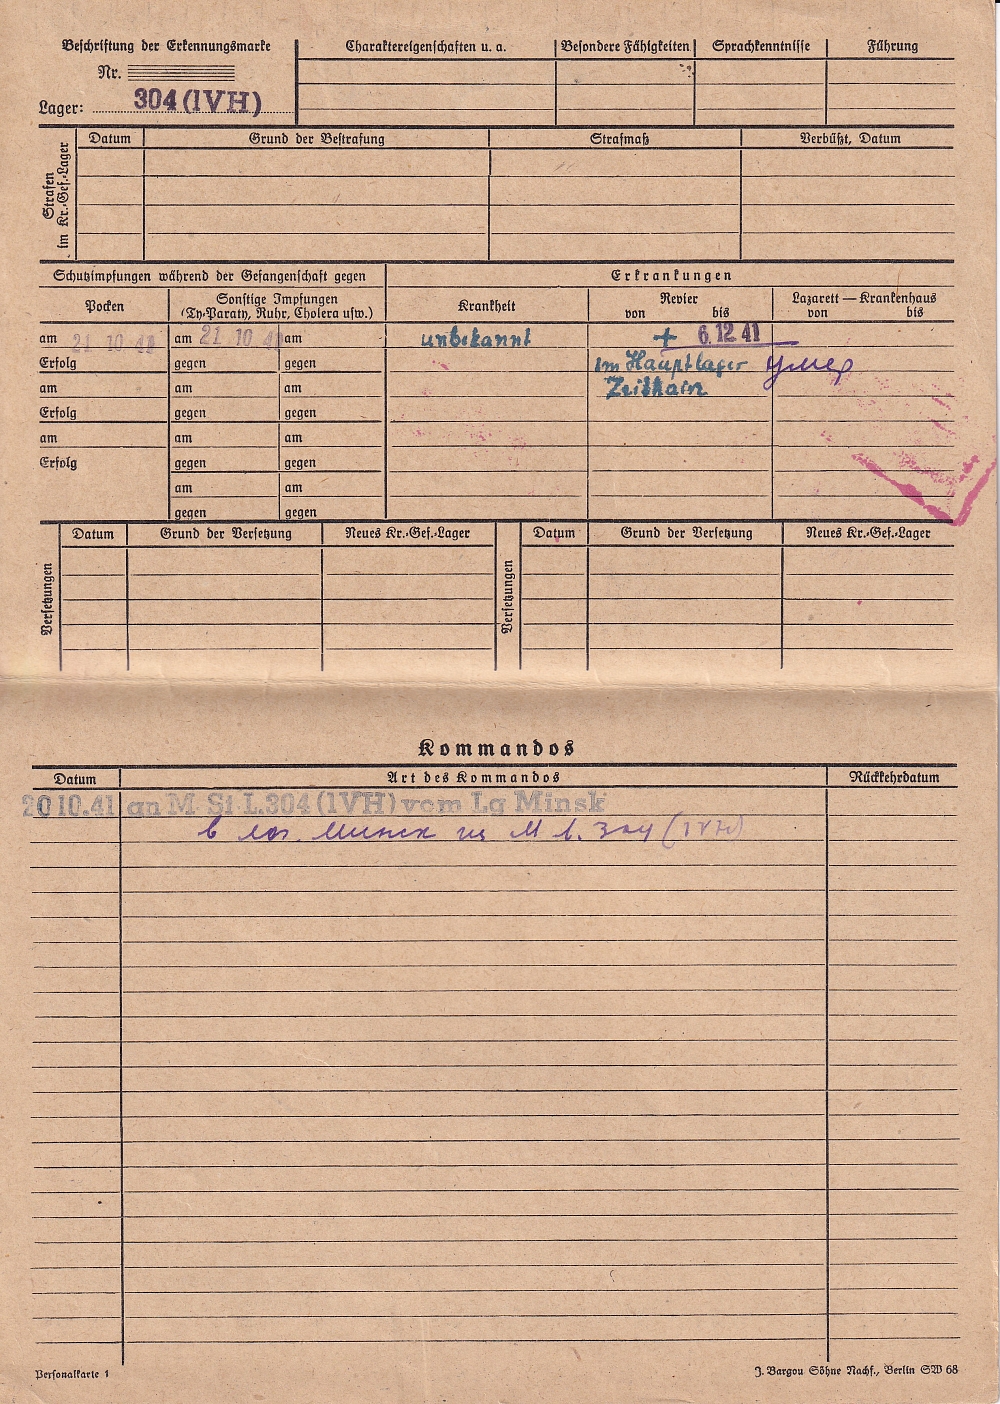 Beschriftung der Erkennungsmarke
Nr.
Lager: 304 (IVH)
Charaktereigenschaften u. a.
Besondere Fähigkeiten
Sprachkenntnisse
Führung
Strafen im Kr.-Gef.-Lager
Datum
Grund der Bestrafung
Strafmaß
Verbüßt, Datum
Schutzimpfungen während der Gefangenschaft gegen
Erkrankungen
Pocken
Sonstige Impfungen
(Ty-Paraty, Ruhr, Cholera usw.)
Krankheit
Revier
von bis
Lazarett — Krankenhaus
von bis
am 21 10 41 am 21 10 41 am
unbekannt + 6.12.41
Erfolg gegen gegen
im Hauptlager умер
am am am
Zeithain
Erfolg gegen gegen
am am am
Erfolg gegen gegen
am am
gegen gegen
Versetzungen
Datum
Grund der Versetzung
Neues Kr.-Gef.-Lager
Versetzungen
Datum
Grund der Versetzung
Neues Kr.-Gef.-Lager
Kommandos
Datum Art des Kommandos Rückkehrdatum
20 10.41 an M St L.304 (IVH) vom Lg Minsk
в лаг. Минск из М л. 304 (IVH)
Personalkarte 1
J. Bargou Söhne Nachf., Berlin SW 68